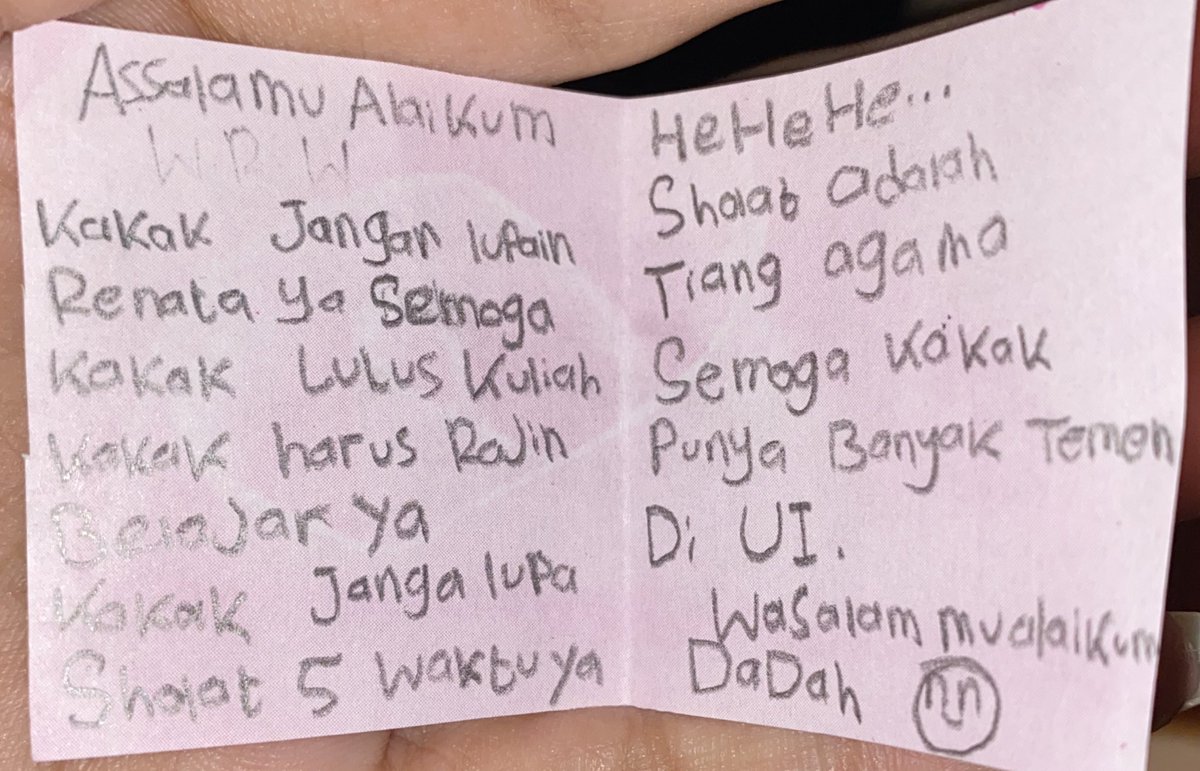 Assalamu Alaikum
W.R.W
Kakak Jangan lupain
Renata Ya Semoga
Kakak LuLus Kuliah
Kakak harus RaJin
BelaJar Ya
Kakak Janga lupa
Sholat 5 waktu ya
HeHeHe...
Sholat adalah
Tiang agama
Semoga Kakak
Punya Banyak Temen
Di UI.
WaSalam mualaikum
DaDah